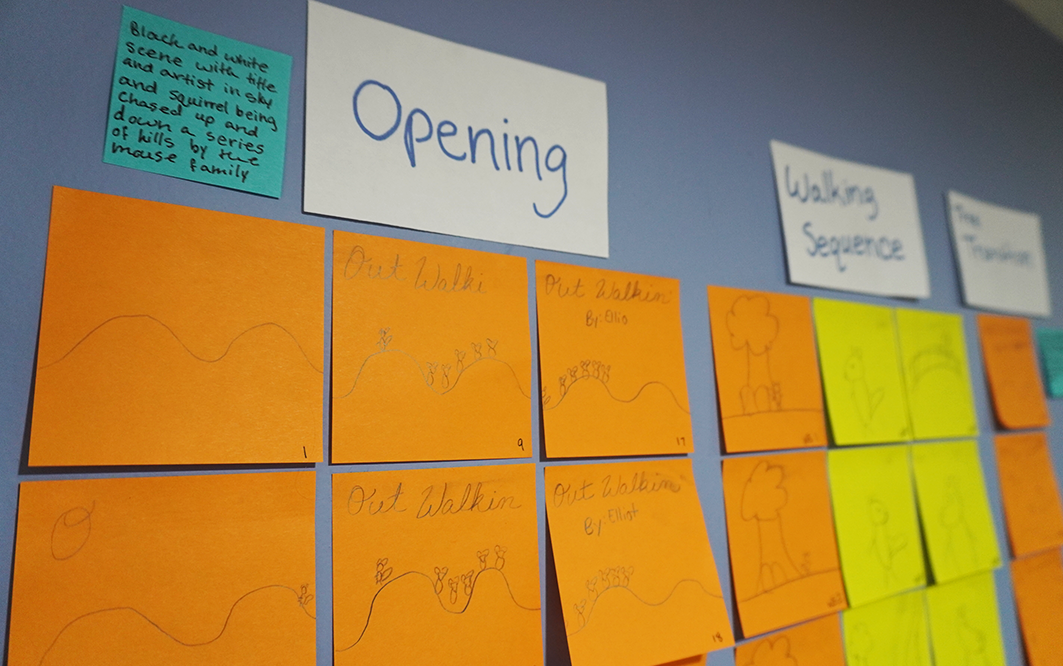 Black and white
scene with title
and artist in sky
and squirrel being
chased up and
down a series
of hills by the
mouse family
Opening
Walking
Sequence
Tree
Transition
1
Out Walki
9
Out Walkin'
By: Ellio
17
Out Walkin
Out Walkin'
By: Elliot
18